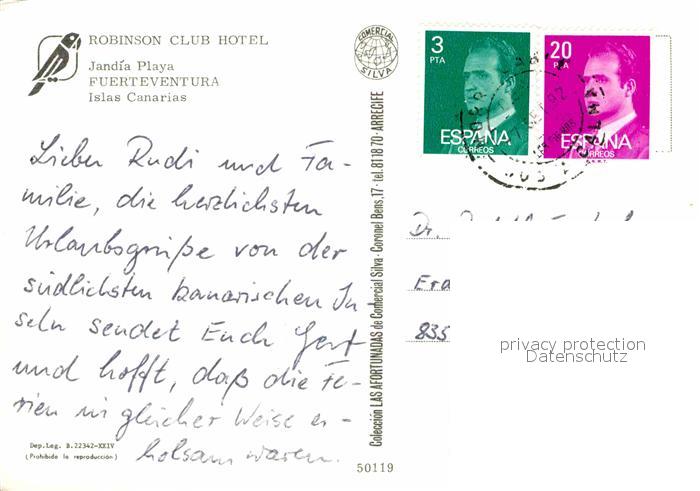 ROBINSON CLUB HOTEL
Jandía Playa
FUERTEVENTURA
Islas Canarias
Lieber Rudi und Fa-
milie, die herzlichsten
Urlaubsgrüße von der
südlichsten kanarischen In
seln sendet Euch Gert
und hofft, daß die Fe-
rien in gleicher Weise er-
holsam waren.
Dep. Leg. B. 22342-XXIV
(Prohibida la reproducción)
Colección LAS AFORTUNADAS de Comercial Silva - Coronel Bens, 17 - tel. 81 18 70 - ARRECIFE
50119
COMERCIAL
SILVA
3
PTA
ESPAÑA
CORREOS
20
PTA
ESPAÑA
CORREOS
Dr.
835
privacy protection
Datenschutz